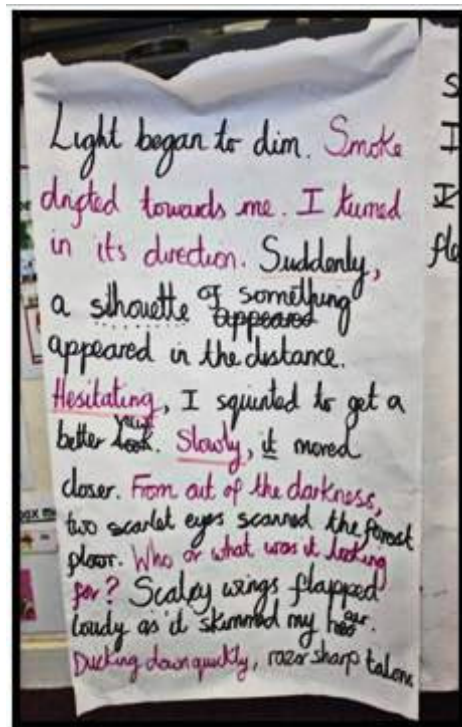 Light began to dim. Smoke
drifted towards me. I turned
in its direction. Suddenly,
a silhouette of something
appeared
appeared in the distance.
Hesitating, I squinted to get a
better look. view Slowly, it moved
closer. From out of the darkness,
two scarlet eyes scanned the forest
floor. Who or what was it looking
for? Scaley wings flapped
loudly as it skimmed my hair.
Ducking down quickly, razor sharp talons
S
I
I
fle